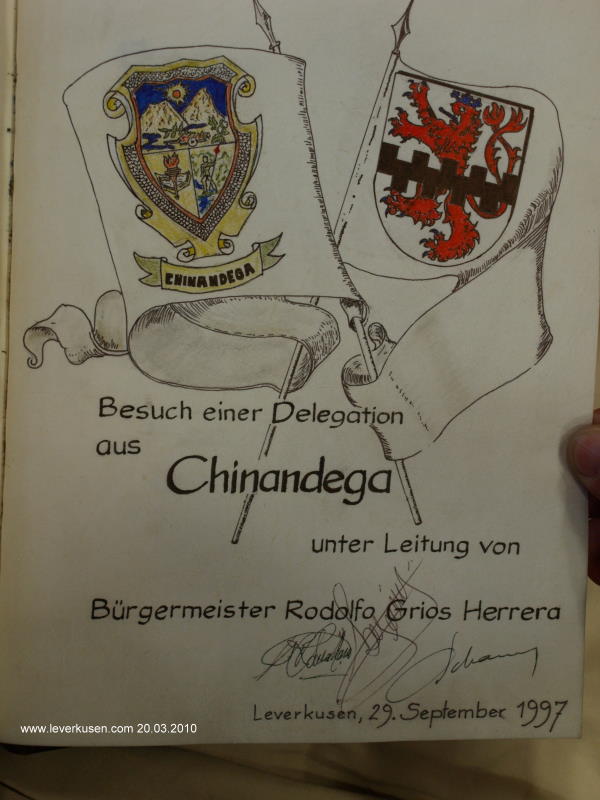 CHINANDEGA
Besuch einer Delegation
aus
Chinandega
unter Leitung von
Bürgermeister Rodolfo Grios Herrera
Leverkusen, 29. September 1997
www.leverkusen.com 20.03.2010